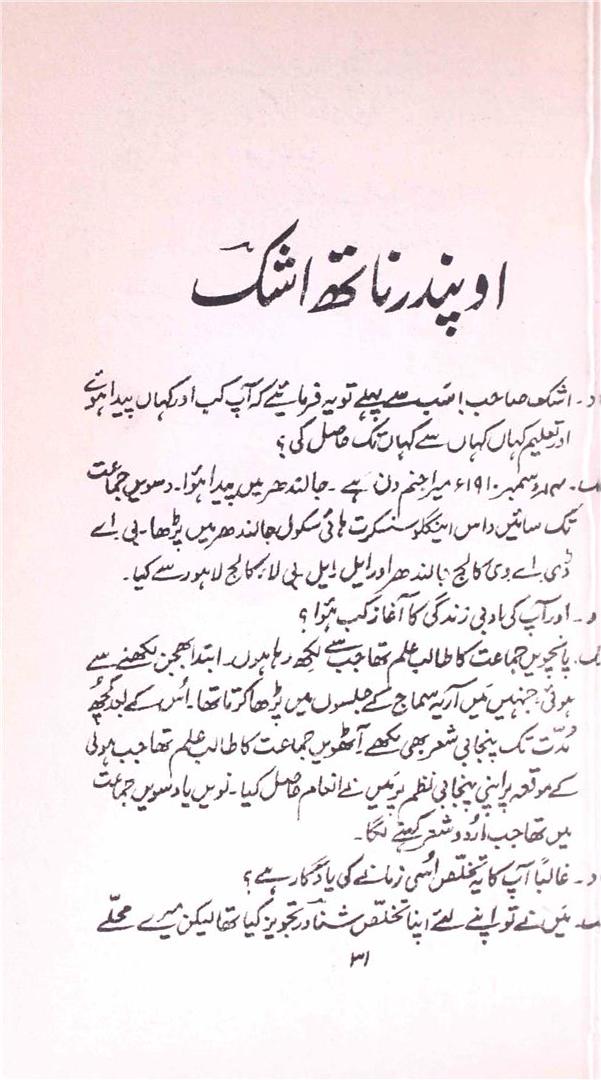 اوپندر ناتھ اشکؔ
د۔ اشک صاحب! سب سے پہلے تو یہ فرمائیے کہ آپ کب اور کہاں پیدا ہوئے
اور تعلیم کہاں کہاں سے کہاں تک حاصل کی؟
۱۴ دسمبر ۱۹۱۰ء میرا جنم دن ہے۔ جالندھر میں پیدا ہؤا۔ دسویں جماعت
تک سائیں داس اینگلو سنسکرت ہائی سکول جالندھر میں پڑھا۔ بی۔ اے
ڈی۔ اے۔ وی کالج جالندھر اور ایل۔ ایل۔ بی لاء کالج لاہور سے کیا۔
د۔ اور آپ کی ادبی زندگی کا آغاز کب ہؤا؟
پانچویں جماعت کا طالب علم تھا جب سے لکھ رہا ہوں۔ ابتدا بھجن لکھنے سے
ہوئی، جنہیں مَیں آریہ سماج کے جلسوں میں پڑھا کرتا تھا۔ اُس کے بعد کچھ
مُدّت تک پنجابی شعر بھی لکھے۔ آٹھویں جماعت کا طالب علم تھا جب ہولی
کے موقعہ پر اپنی پنجابی نظم پر مَیں نے انعام حاصل کیا۔ نویں یا دسویں جماعت
میں تھا جب اُردو شعر کہنے لگا۔
د۔ غالباً آپ کا یہ تخلّص اُسی زمانے کی یادگار ہے؟
مَیں نے تو اپنے لئے اپنا تخلّص شناور تجویز کیا تھا لیکن میرے محلّے
۳۱